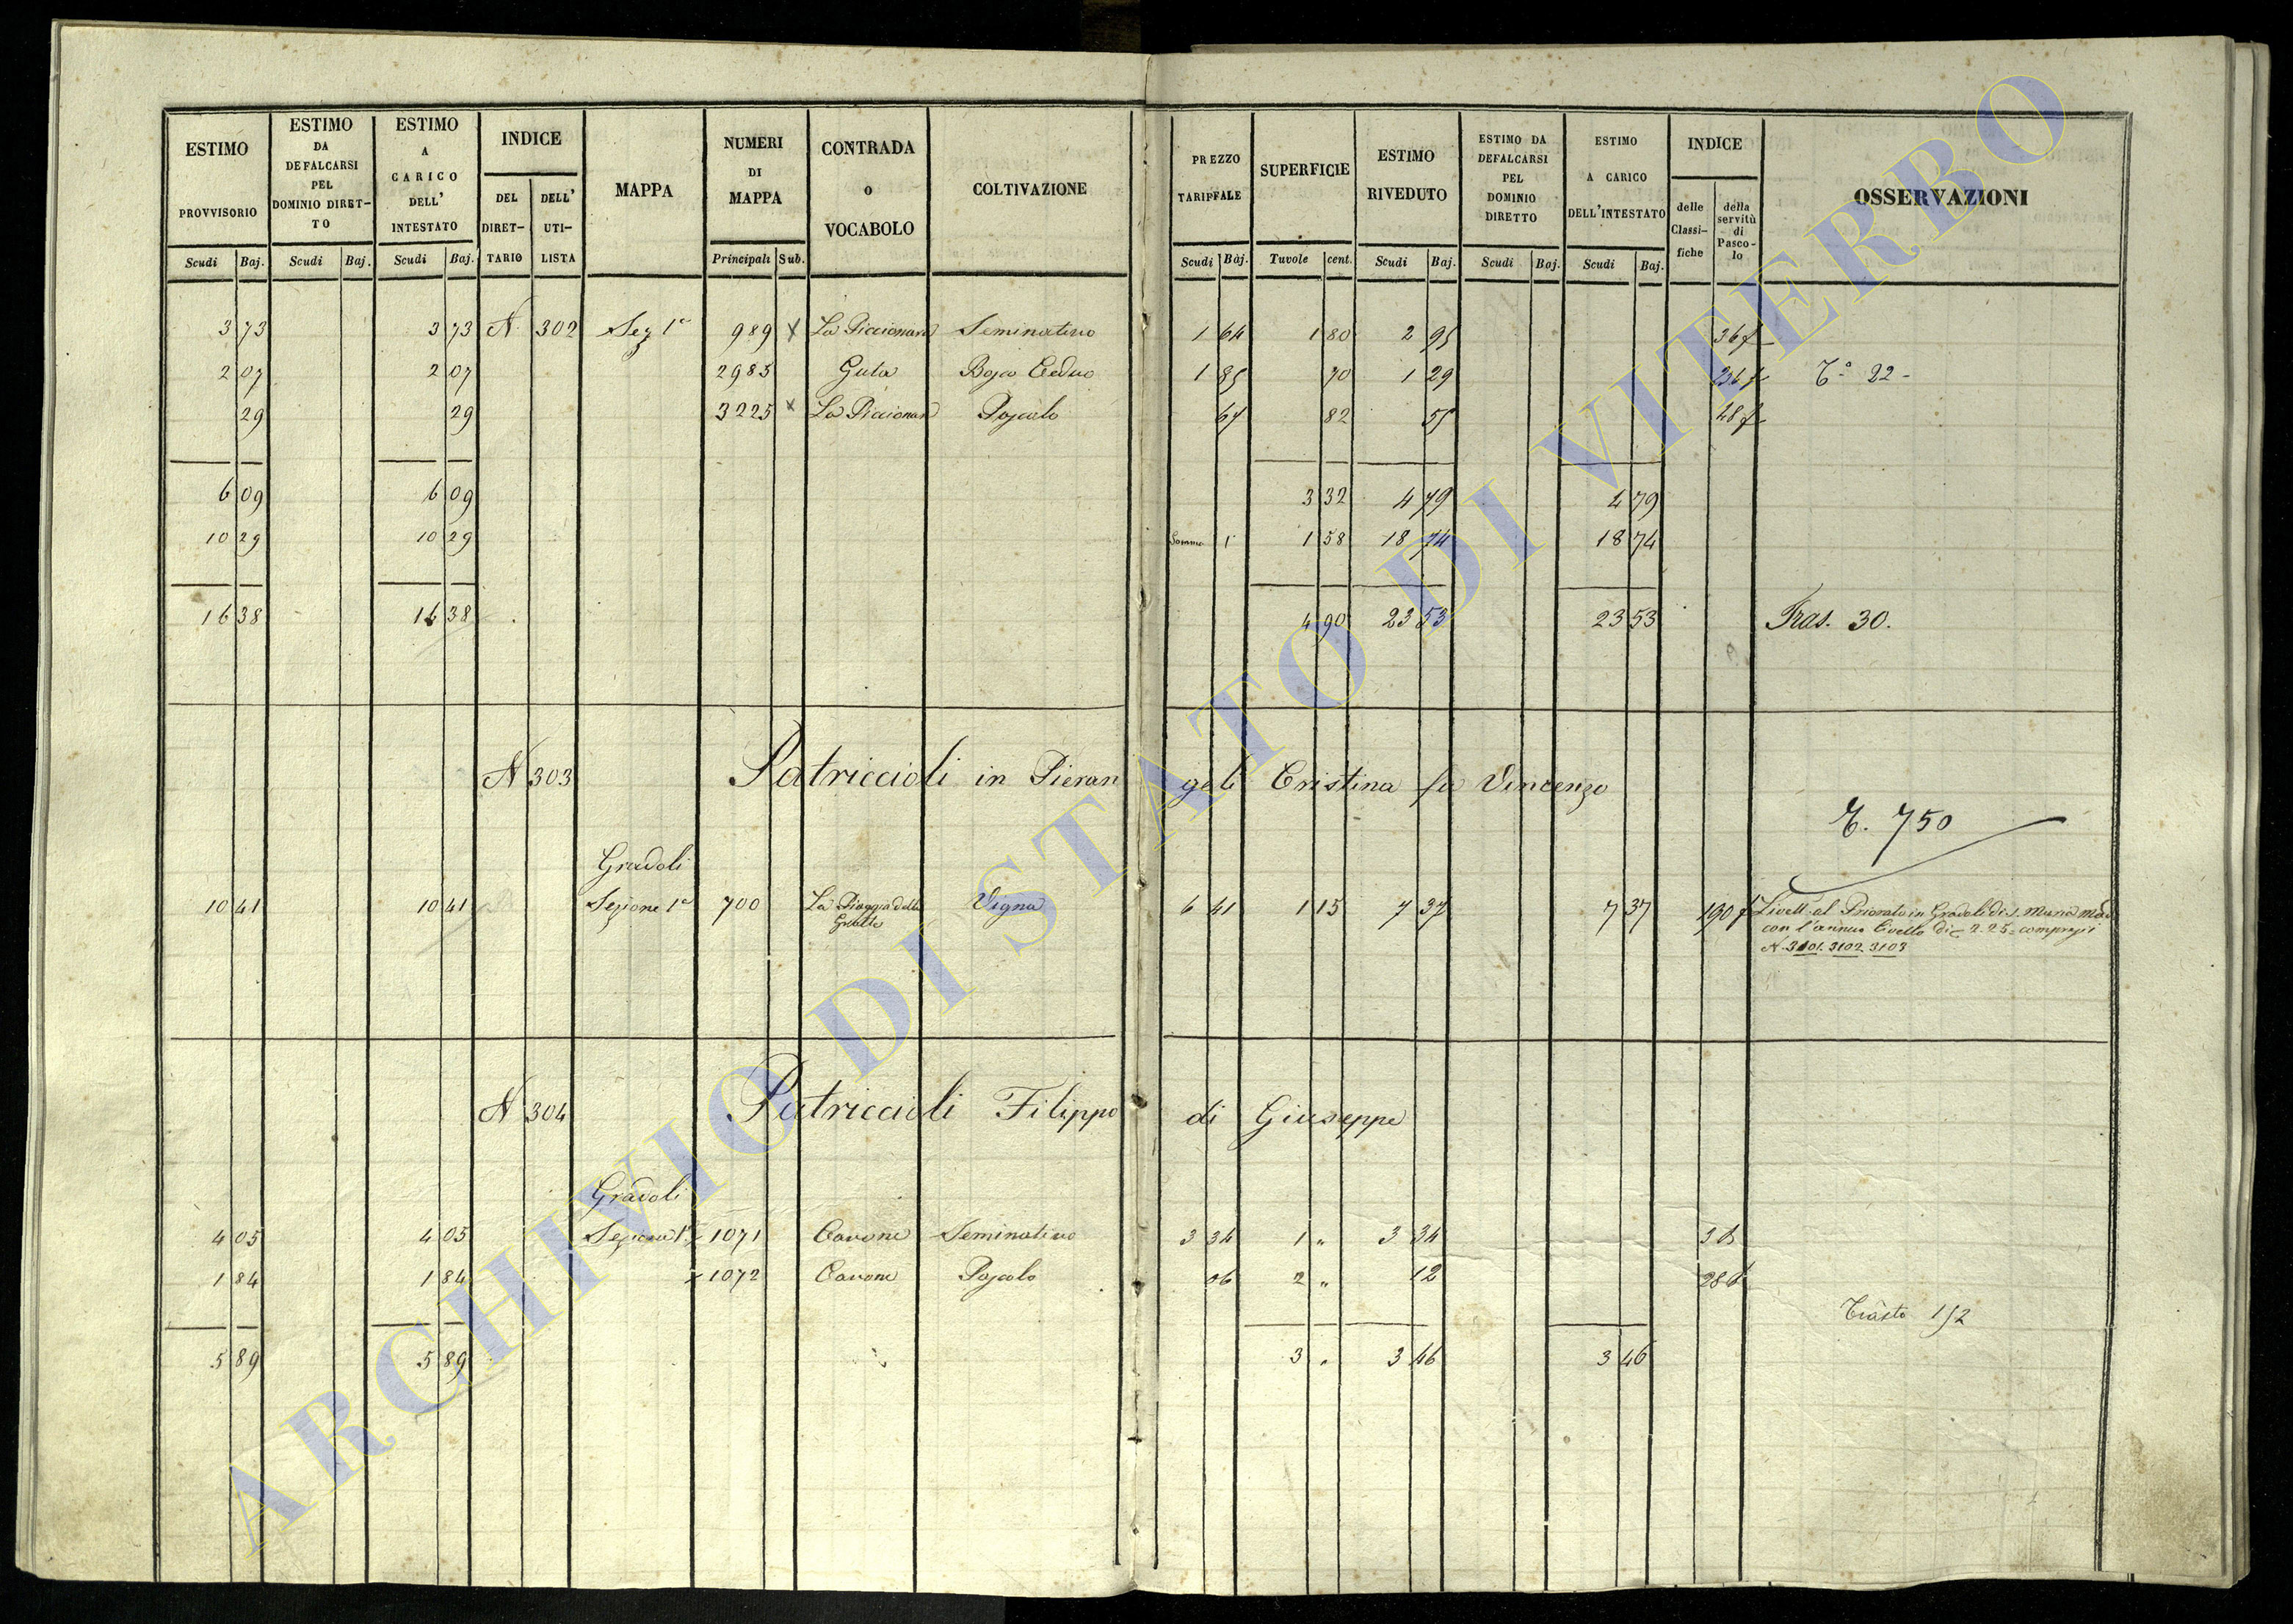 ESTIMO PROVVISORIO Scudi Baj.
ESTIMO DA DEFALCARSI PEL DOMINIO DIRET-TO Scudi Baj.
ESTIMO A CARICO DELL' INTESTATO Scudi Baj.
INDICE DEL DIRET-TARIO DELL' UTI-LISTA
MAPPA
NUMERI DI MAPPA Principali Sub.
CONTRADA O VOCABOLO
COLTIVAZIONE
PREZZO TARIFFALE Scudi Baj.
SUPERFICIE Tavole cent.
ESTIMO RIVEDUTO Scudi Baj.
ESTIMO DA DEFALCARSI PEL DOMINIO DIRETTO Scudi Baj.
ESTIMO A CARICO DELL'INTESTATO Scudi Baj.
INDICE delle Classi-fiche della servitù di Pasco-lo
OSSERVAZIONI
3 73 3 73 N 302 Sez 1a 989 x La Piccionara Seminativo 1 64 1 80 2 95 36 f
2 07 2 07 2985 Guta Bosco Ceduo 1 85 70 1 29 236 f T.o 22
29 29 3225 x La Piccionara Pascolo 67 82 55 48 f
6 09 6 09 3 32 4 79 4 79
10 29 10 29 Somma 1 58 18 74 18 74
16 38 16 38 4 90 23 53 23 53 Tras. 30.
N 303 Patriccioli in Pierangeli Cristina fu Vincenzo
T. 750
Gradoli
10 41 10 41 Sezione 1a 700 La Piaggia delle Grotte Vigna 6 41 1 15 7 37 7 37 190 f Livell. al Priorato in Gradoli di S. Maria Madd
con l'annuo livello di 2.25 compresi i
N. 3101. 3102. 3103
N 304 Patriccioli Filippo di Giuseppe
Gradoli
4 05 4 05 Sezione 1a x 1071 Cavone Seminativo 3 34 1 " 3 34 3
1 84 1 84 x 1072 Cavone Pascolo 06 2 " 12 28
152
5 89 5 89 3 " 3 46 3 46
ARCHIVIO DI STATO DI VITERBO